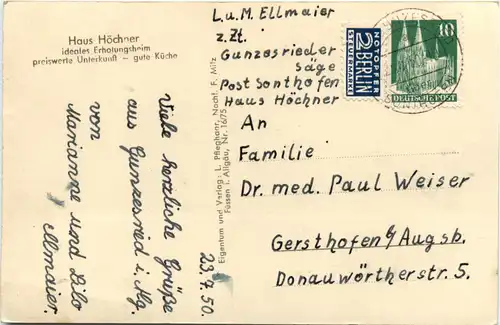 Haus Höchner
ideales Erholungsheim
preiswerte Unterkunft – gute Küche
L. u. M. Ellmaier
z. Zt.
Gunzesrieder
Säge
Post Sonthofen
Haus Höchner
Viele herzliche Grüße
aus Gunzesried i. Allg.
von
Marianne und Lilo
Ellmaier
23.7.50.
Eigentum und Verlag: L. Pfleghanr, Nachf. F. Mitz
Füssen i. Allgäu, Nr. 16/75
NOTOPFER
2 BERLIN
STEUERMARKE
10
DEUTSCHE POST
An
Familie
Dr. med. Paul Weiser
Gersthofen b/ Augsb.
Donauwörtherstr. 5.